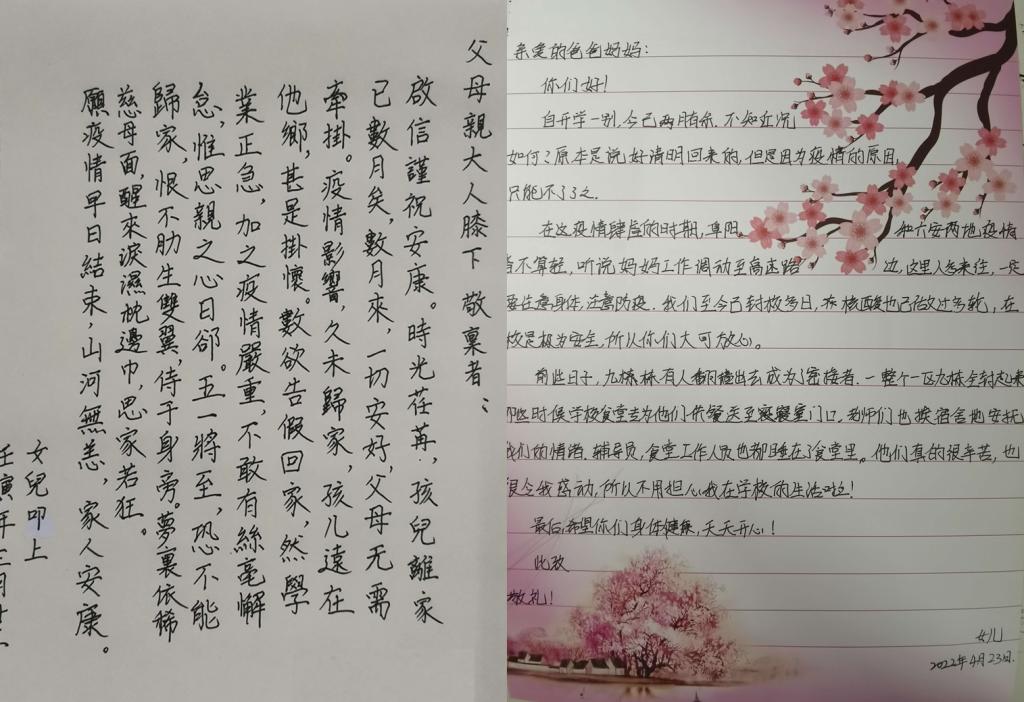 父母親大人膝下 敬稟者：
啟信謹祝安康。時光荏苒，孩兒離家
已數月矣，數月來，一切安好，父母无需
牽掛。疫情影響，久未歸家，孩儿遠在
他鄉，甚是掛懷。數欲告假回家，然學
業正急，加之疫情嚴重，不敢有絲毫懈
怠，惟思親之心日郤。五一將至，恐不能
歸家，恨不肋生雙翼，侍于身旁。夢裏依稀
慈母面，醒來淚濕枕邊巾，思家若狂。
願疫情早日結束，山河無恙，家人安康。
女兒叩上
壬寅年三月廿
亲爱的爸爸妈妈：
你们好！
自开学一别，今已两月有余，不知近况
如何？原本是说好清明回来的，但是因为疫情的原因，
只能不了了之。
在这疫情肆虐的时期，阜阳 和六安两地疫情
皆不算轻，听说妈妈工作调动至高速路 边，这里人来来往，一定
要注意身体，注意防疫。我们至今已封校多日，核酸也已做过多轮，在
校是极为安全，所以你们大可放心。
前些日子，九栋有人翻墙出去成为了密接者，一整个一区九栋全封起来
那些时候学校食堂去为他们将餐送至寝室门口，老师们也挨宿舍地安抚
我们的情绪，辅导员，食堂工作人员也都睡在了食堂里。他们真的很辛苦，也
很令我感动，所以不用担心我在学校的生活啦！
最后，希望你们身体健康，天天开心！
此致
敬礼！
女儿
2022年4月23日.